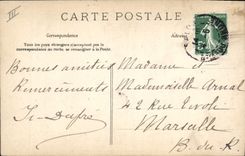 III
CARTE POSTALE
Correspondance
Tous les pays étrangers n'acceptent pas
la correspondance au recto.
se renseigner à la Poste
Bonnes amitiés
Remerciements
Dufré
Madame
Mademoiselle Arnal
42 Rue Tivoli
Marseille
B. du R.